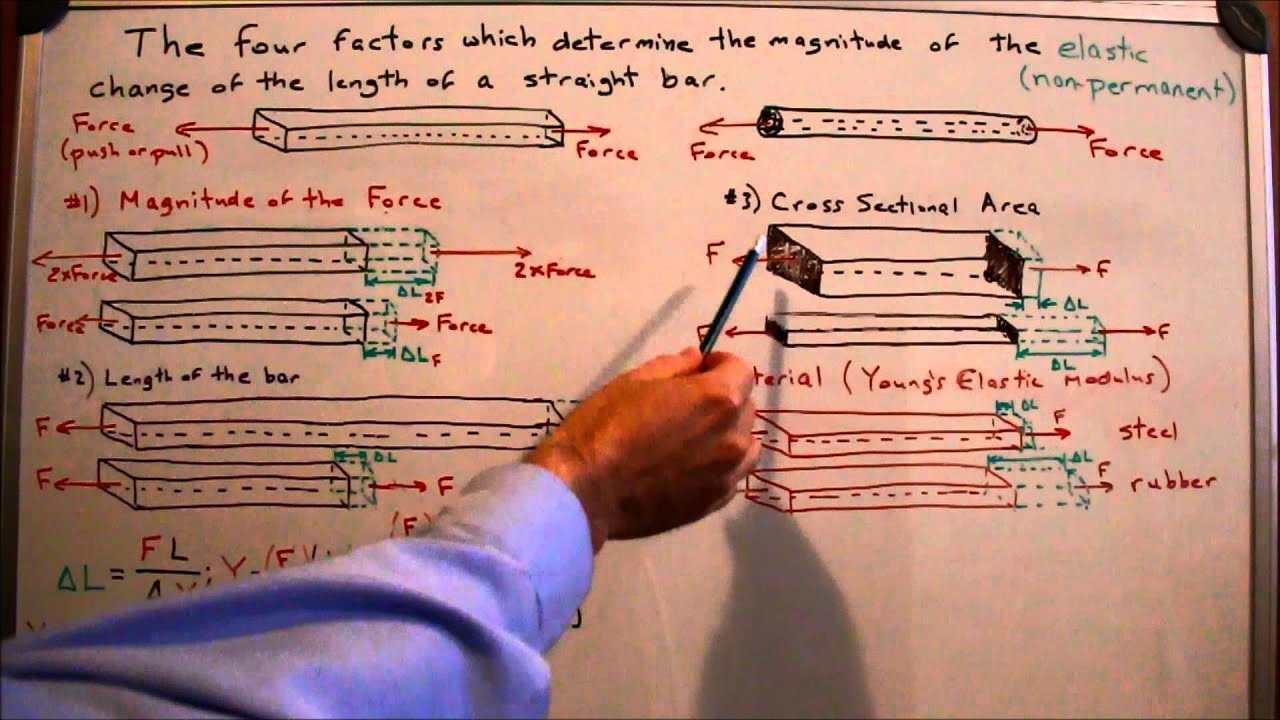 The four factors which determine the magnitude of the elastic
change of the length of a straight bar. (non-permanent)
Force
(push or pull)
Force
Force
Force
#1) Magnitude of the Force
2xForce
2xForce
ΔL2F
Force
Force
ΔLF
#2) Length of the bar
F
F
ΔL
F
(F)
ΔL = FL
#3) Cross Sectional Area
F
F
ΔL
F
F
ΔL
(Young's Elastic Modulus)
ΔL
F
steel
ΔL
F
rubber